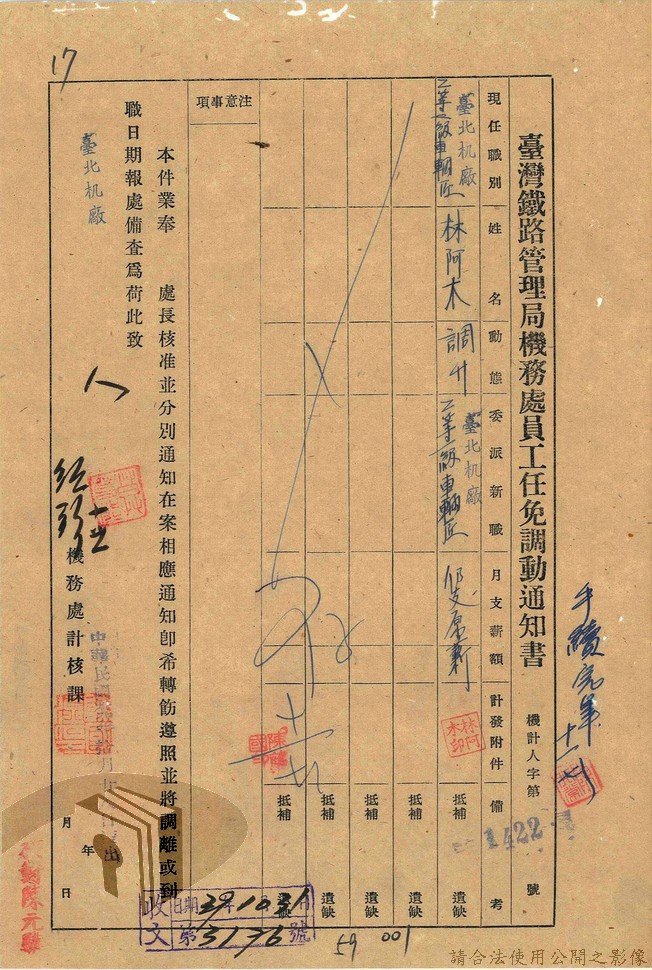 臺灣鐵路管理局機務處員工任免調動通知書
機計人字第 1422 號
手續完畢
現任職別
姓名
動態
委派新職
月支薪額
計發附件
備考
臺北机廠
林阿木
調升
臺北机廠
仍支原薪
林阿木印
抵補 遺缺
抵補 遺缺
抵補 遺缺
抵補 遺缺
抵補
注意事項
本件業奉 處長核准並分別通知在案相應通知卽希轉飭遵照並將調離或到
職日期報處備査爲荷此致
臺北机廠
機務處計核課
年 月 日
收文
日期 39年10 31
第 3176 號
59 001
17
請合法使用公開之影像